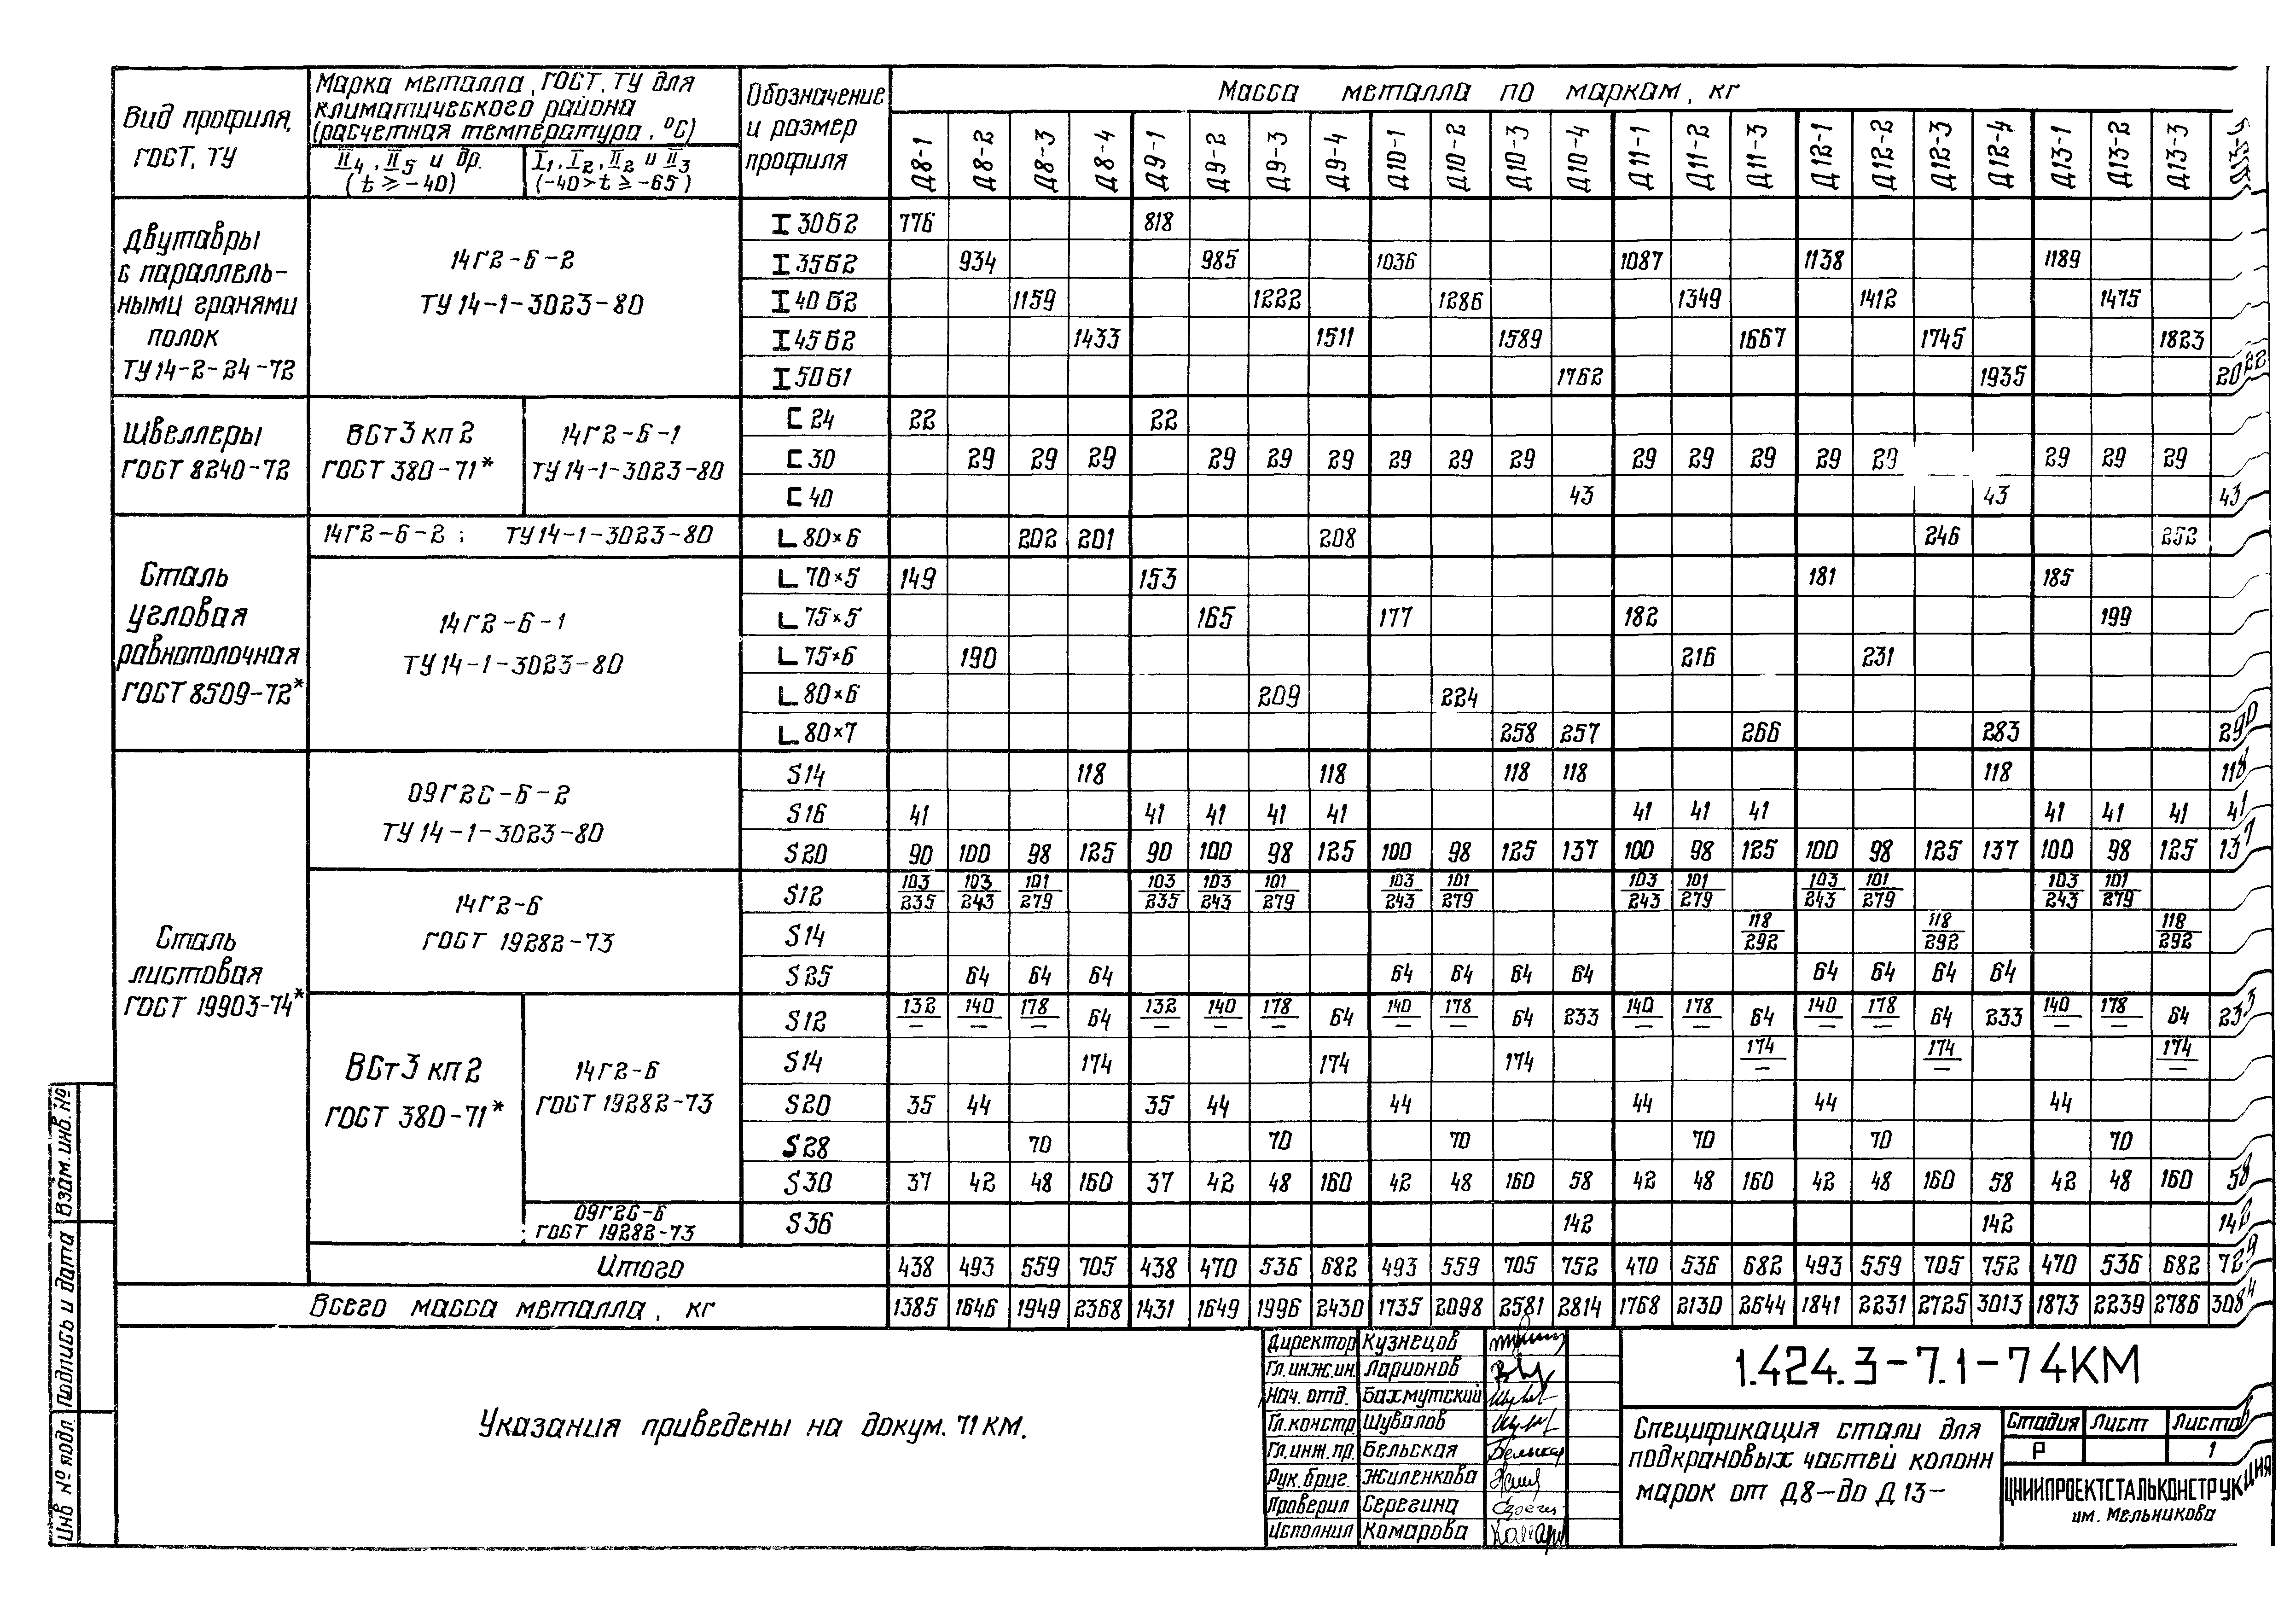 Вид профиля, ГОСТ, ТУ
Марка металла, ГОСТ, ТУ для климатического района (расчетная температура, °С)
II4, II5 и др. (t ≥ -40)
I1, I2, II2 и II3 (-40 > t ≥ -65)
Обозначение и размер профиля
Масса металла по маркам, кг
Д8-1 Д8-2 Д8-3 Д8-4 Д9-1 Д9-2 Д9-3 Д9-4 Д10-1 Д10-2 Д10-3 Д10-4 Д11-1 Д11-2 Д11-3 Д12-1 Д12-2 Д12-3 Д12-4 Д13-1 Д13-2 Д13-3
Двутавры с параллель-
ными гранями
полок
ТУ 14-2-24-72
14Г2-6-2
ТУ 14-1-3023-80
I 30Б2 776 818
I 35Б2 934 985 1036 1087 1138 1189
I 40Б2 1159 1222 1286 1349 1412 1475
I 45Б2 1433 1511 1589 1667 1745 1823
I 50Б1 1762 1935 2022
Швеллеры
ГОСТ 8240-72
ВСт3кп2
ГОСТ 380-71*
14Г2-6-1
ТУ 14-1-3023-80
С 24 22 22
С 30 29 29 29 29 29 29 29 29 29 29 29 29 29 29 29 29 29
С 40 43 43 43
Сталь
угловая
равнополочная
ГОСТ 8509-72*
14Г2-6-2; ТУ 14-1-3023-80
L 80×6 202 201 208 246 252
14Г2-6-1
ТУ 14-1-3023-80
L 70×5 149 153 181 185
L 75×5 165 177 182 199
L 75×6 190 216 231
L 80×6 209 224
L 80×7 258 257 266 283 290
Сталь
листовая
ГОСТ 19903-74*
09Г2С-6-2
ТУ 14-1-3023-80
S14 118 118 118 118 118 118
S16 41 41 41 41 41 41 41 41 41 41 41 41
S20 90 100 98 125 90 100 98 125 100 98 125 137 100 98 125 100 98 125 137 100 98 125 137
14Г2-6
ГОСТ 19282-73
S12 103/235 103/243 101/279 103/235 103/243 101/279 103/243 101/279 103/243 101/279 103/243 101/279 103/243 101/279
S14 118/292 118/292 118/292
S25 64 64 64 64 64 64 64 64 64 64 64
ВСт3кп2
ГОСТ 380-71*
14Г2-6
ГОСТ 19282-73
S12 132/— 140/— 178/— 64 132/— 140/— 178/— 64 140/— 178/— 64 233 140/— 178/— 64 140/— 178/— 64 233 140/— 178/— 64 233
S14 174 174 174 174/— 174/— 174/—
S20 35 44 35 44 44 44 44 44
S28 70 70 70 70 70 70
S30 37 42 48 160 37 42 48 160 42 48 160 58 42 48 160 42 48 160 58 42 48 160 58
09Г2С-6
ГОСТ 19282-73
S36 142 142 142
Итого 438 493 559 705 438 470 536 682 493 559 705 752 470 536 682 493 559 705 752 470 536 682 729
Всего масса металла, кг 1385 1646 1949 2368 1431 1649 1996 2430 1735 2098 2581 2814 1768 2130 2644 1841 2231 2725 3013 1873 2239 2786 3084
Указания приведены на докум. 71КМ.
Директор Кузнецов
Гл.инж.ин. Ларионов
Нач. отд. Бахмутский
Гл.констр. Шувалов
Гл.инж.пр. Бельская
Рук.бриг. Жиленкова
Проверил Серегина
Исполнил Комарова
1.424.3-7.1-74КМ
Спецификация стали для
подкрановых частей колонн
марок от Д8- до Д13-
Стадия Лист Листов
Р 1
ЦНИИПРОЕКТСТАЛЬКОНСТРУКЦИЯ
им. Мельникова
Инв № подл. Подпись и дата Взам. инв. №